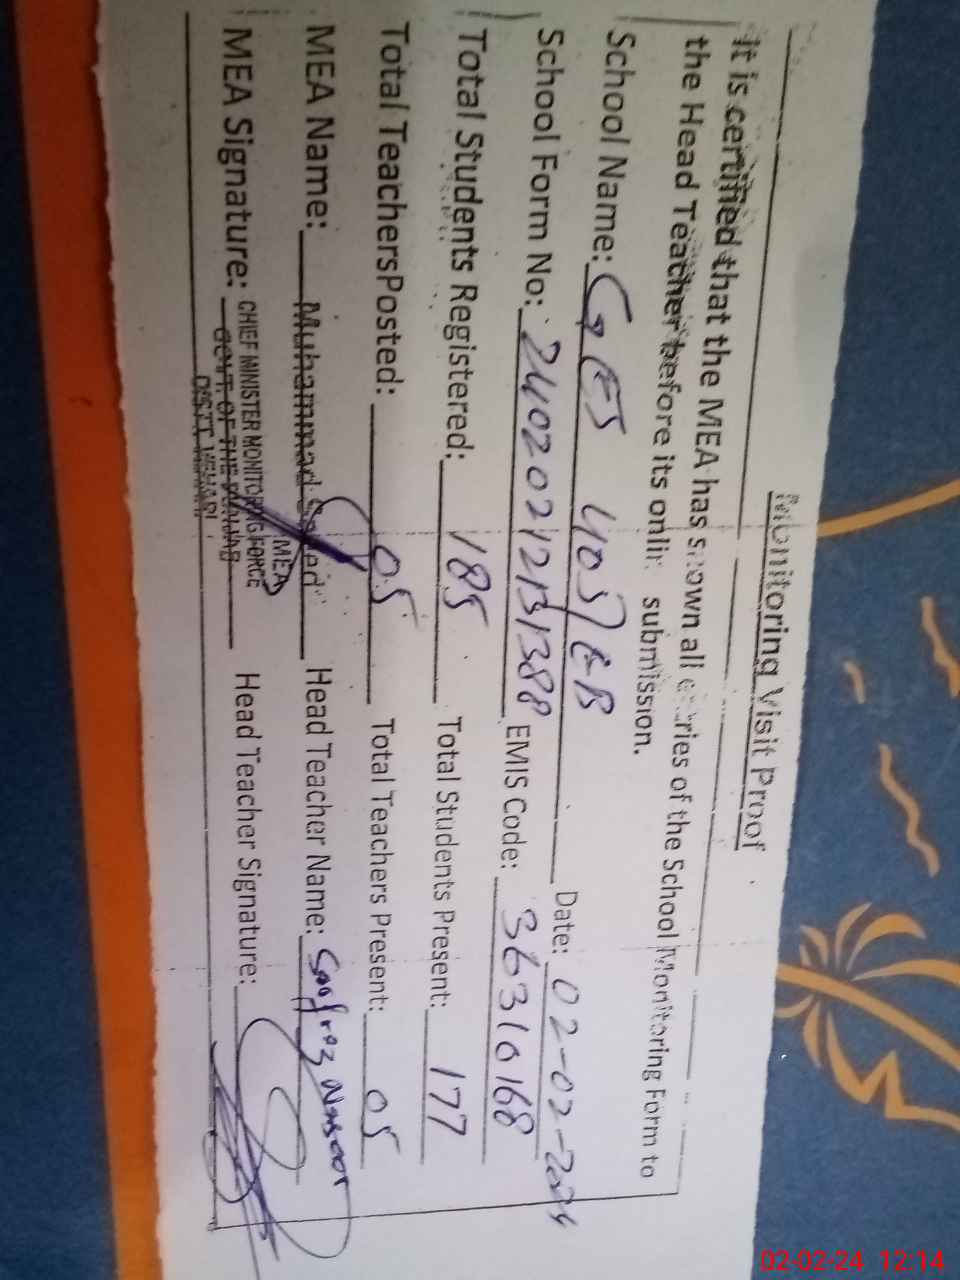 Monitoring Visit Proof
It is certified that the MEA has shown all entries of the School Monitoring Form to
the Head Teacher before its online submission.
School Name: GES 405/EB Date: 02-02-2024
School Form No: 24020212131388 EMIS Code: 36310168
Total Students Registered: 185 Total Students Present: 177
Total TeachersPosted: 05 Total Teachers Present: 05
MEA Name: Muhammad Saeed Head Teacher Name: Sarfraz Nasoor
MEA Signature: Head Teacher Signature:
MEA
CHIEF MINISTER MONITORING FORCE
GOVT. OF THE PUNJAB
DISTT. VEHARI
02-02-24 12:14